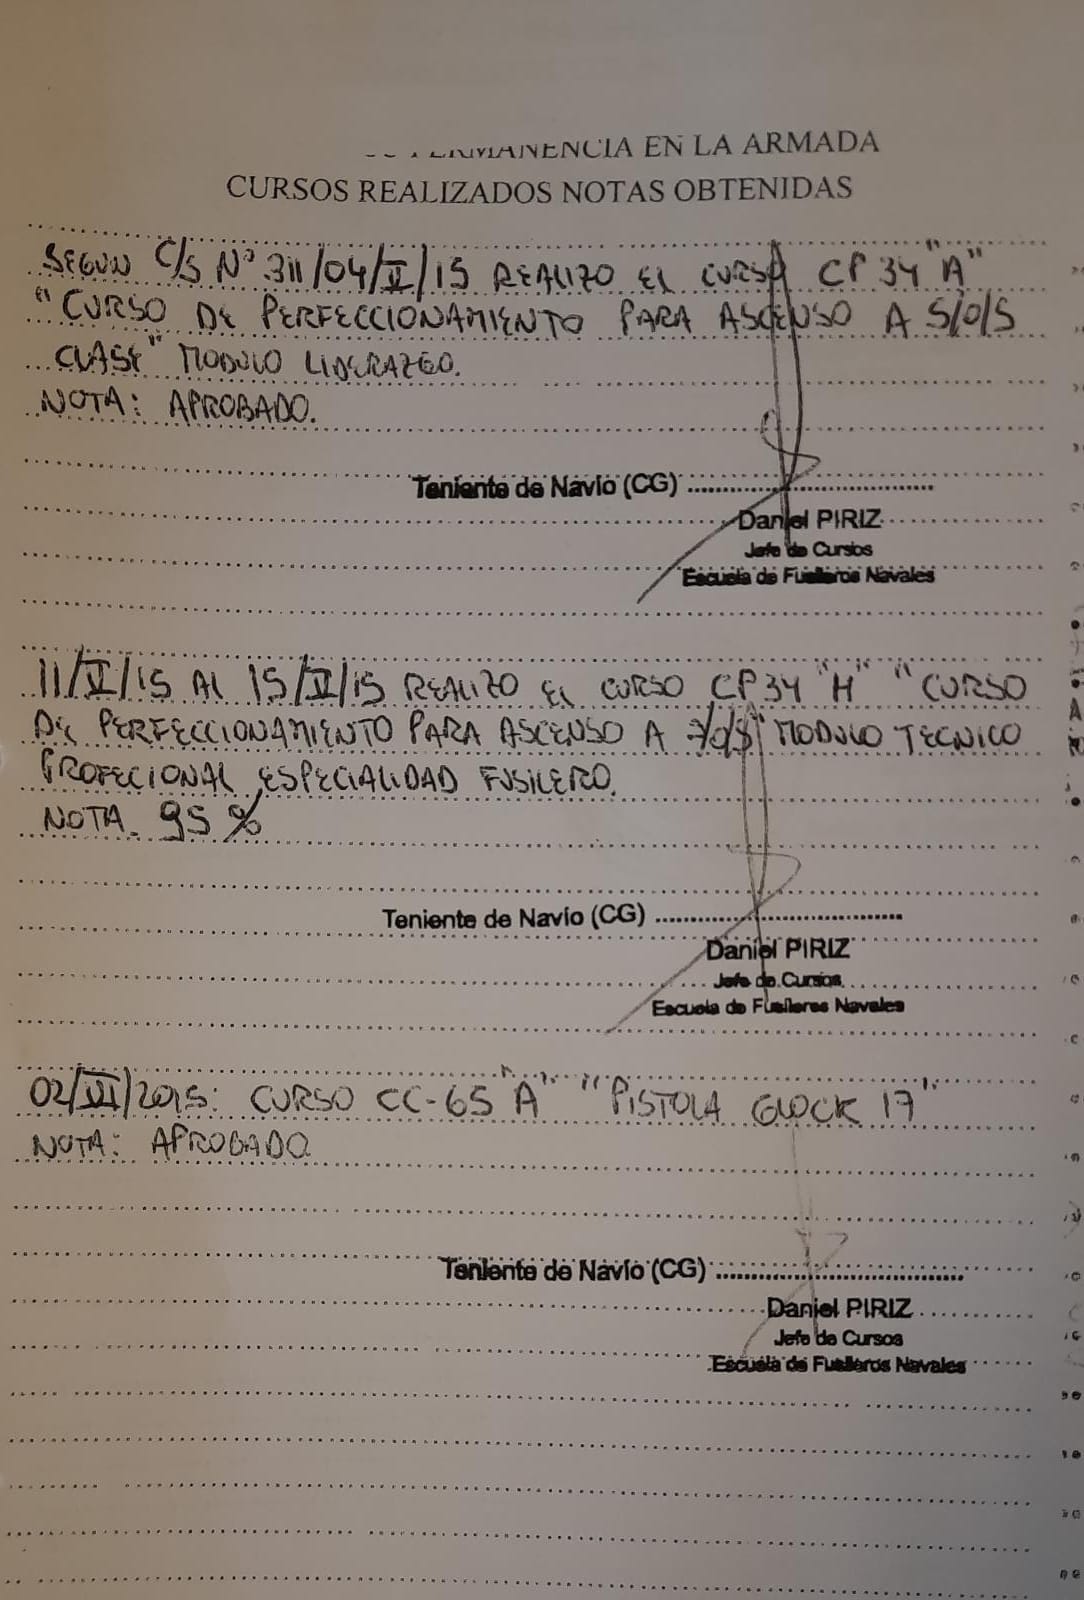 PERMANENCIA EN LA ARMADA
CURSOS REALIZADOS NOTAS OBTENIDAS
SEGUN C/S Nº 311/04/II/15 REALIZO EL CURSO CP 34 "A"
"CURSO DE PERFECCIONAMIENTO PARA ASCENSO A S/O/S
CLASE" MODULO LIDERAZGO.
NOTA: APROBADO.
Teniente de Navío (CG)
Daniel PIRIZ
Jefe de Cursos
Escuela de Fusileros Navales
11/V/15 AL 15/V/15 REALIZO EL CURSO CP 34 "H" "CURSO
DE PERFECCIONAMIENTO PARA ASCENSO A MODULO TECNICO
PROFECIONAL ESPECIALIDAD FUSILERO.
NOTA. 95 %
Teniente de Navío (CG)
Daniel PIRIZ
Jefe de Cursos
Escuela de Fusileros Navales
02/VI/2015: CURSO CC-65 "A" "PISTOLA GLOCK 17"
NOTA: APROBADO
Teniente de Navío (CG)
Daniel PIRIZ
Jefe de Cursos
Escuela de Fusileros Navales